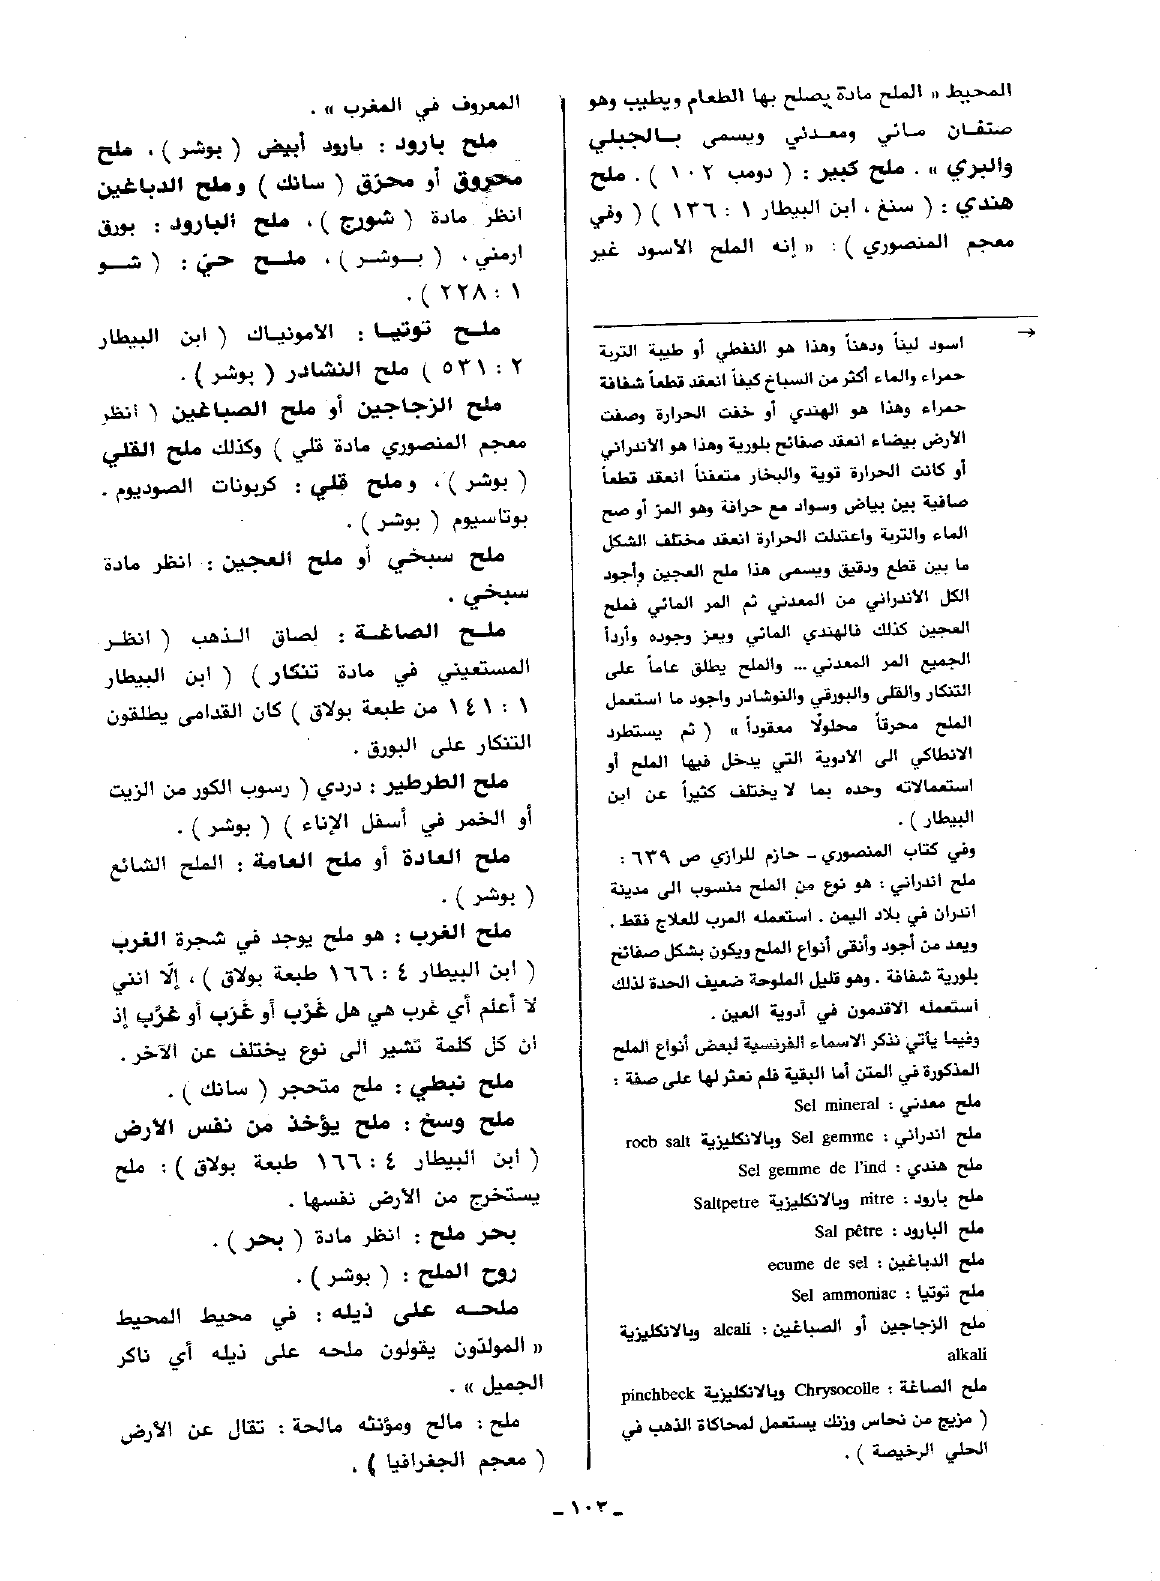 المحيط « الملح مادة يصلح بها الطعام ويطيب وهو
صنفان مائي ومعدني ويسمى بالجبلي
والبري » . ملح كبير : ( دومب ١٠٢ ) . ملح
هندي : ( سنغ ، ابن البيطار ١ : ١٣٦ ) ( وفي
معجم المنصوري ) : « إنه الملح الأسود غير
المعروف في المغرب » .
ملح بارود : بارود أبيض ( بوشر ) ، ملح
محروق أو محزق ( سانك ) وملح الدباغين
انظر مادة ( شورج ) ، ملح البارود : بورق
ارمني ، ( بوشر ) ، ملح حيّ : ( شو
١ : ٢٢٨ ) .
ملح توتيا : الامونياك ( ابن البيطار
٢ : ٥٣١ ) ملح النشادر ( بوشر ) .
ملح الزجاجين أو ملح الصباغين ( انظر
معجم المنصوري مادة قلي ) وكذلك ملح القلي
( بوشر ) ، وملح قلي : كربونات الصوديوم .
بوتاسيوم ( بوشر ) .
ملح سبخي أو ملح العجين : انظر مادة
سبخي .
ملح الصاغة : لصاق الذهب ( انظر
المستعيني في مادة تنكار ) ( ابن البيطار
١ : ١٤١ من طبعة بولاق ) كان القدامى يطلقون
التنكار على البورق .
ملح الطرطير : دردي ( رسوب الكور من الزيت
أو الخمر في أسفل الإناء ) ( بوشر ) .
ملح العادة أو ملح العامة : الملح الشائع
( بوشر ) .
ملح الغرب : هو ملح يوجد في شجرة الغرب
( ابن البيطار ٤ : ١٦٦ طبعة بولاق ) ، إلّا انني
لا أعلم أي غرب هي هل غَرْب أو غَرَب أو غرّب إذ
ان كل كلمة تشير الى نوع يختلف عن الآخر .
ملح نبطي : ملح متحجر ( سانك ) .
ملح وسخ : ملح يؤخذ من نفس الأرض
( ابن البيطار ٤ : ١٦٦ طبعة بولاق ) : ملح
يستخرج من الأرض نفسها .
بحر ملح : انظر مادة ( بحر ) .
روح الملح : ( بوشر ) .
ملحه على ذيله : في محيط المحيط
« المولدّون يقولون ملحه على ذيله أي ناكر
الجميل » .
ملح : مالح ومؤنثه مالحة : تقال عن الأرض
( معجم الجغرافيا ) .
→
اسود ليناً ودهناً وهذا هو النفطي أو طيبة التربة
حمراء والماء أكثر من السباخ كيفاً انعقد قطعاً شفافة
حمراء وهذا هو الهندي أو خفت الحرارة وصفت
الأرض بيضاء انعقد صفائح بلورية وهذا هو الاندراني
أو كانت الحرارة قوية والبخار متعفناً انعقد قطعاً
صافية بين بياض وسواد مع حرافة وهو المر أو صح
الماء والتربة واعتدلت الحرارة انعقد مختلف الشكل
ما بين قطع ودقيق ويسمى هذا ملح العجين وأجود
الكل الاندراني من المعدني ثم المر المائي فملح
العجين كذلك فالهندي المائي ويعز وجوده وأردأ
الجميع المر المعدني ... والملح يطلق عاماً على
التنكار والقلي والبورقي والنوشادر واجود ما استعمل
الملح محرقاً محلولًا معقوداً » ( ثم يستطرد
الانطاكي الى الادوية التي يدخل فيها الملح أو
استعمالاته وحده بما لا يختلف كثيراً عن ابن
البيطار ) .
وفي كتاب المنصوري ـ حازم للرازي ص ٦٣٩ :
ملح اندراني : هو نوع من الملح منسوب الى مدينة
اندران في بلاد اليمن . استعمله العرب للعلاج فقط .
ويعد من أجود وأنقى أنواع الملح ويكون بشكل صفائح
بلورية شفافة . وهو قليل الملوحة ضعيف الحدة لذلك
استعمله الاقدمون في أدوية العين .
وفيما يأتي نذكر الاسماء الفرنسية لبعض أنواع الملح
المذكورة في المتن أما البقية فلم نعثر لها على صفة :
ملح معدني : Sel mineral
ملح اندراني : Sel gemme وبالانكليزية rocb salt
ملح هندي : Sel gemme de l'ind
ملح بارود : nitre وبالانكليزية Saltpetre
ملح البارود : Sal pêtre
ملح الدباغين : ecume de sel
ملح توتيا : Sel ammoniac
ملح الزجاجين أو الصباغين : alcali وبالانكليزية
alkali
ملح الصاغة : Chrysocolle وبالانكليزية pinchbeck
( مزيج من نحاس وزنك يستعمل لمحاكاة الذهب في
الحلي الرخيصة ) .
ـ ١٠٣ ـ